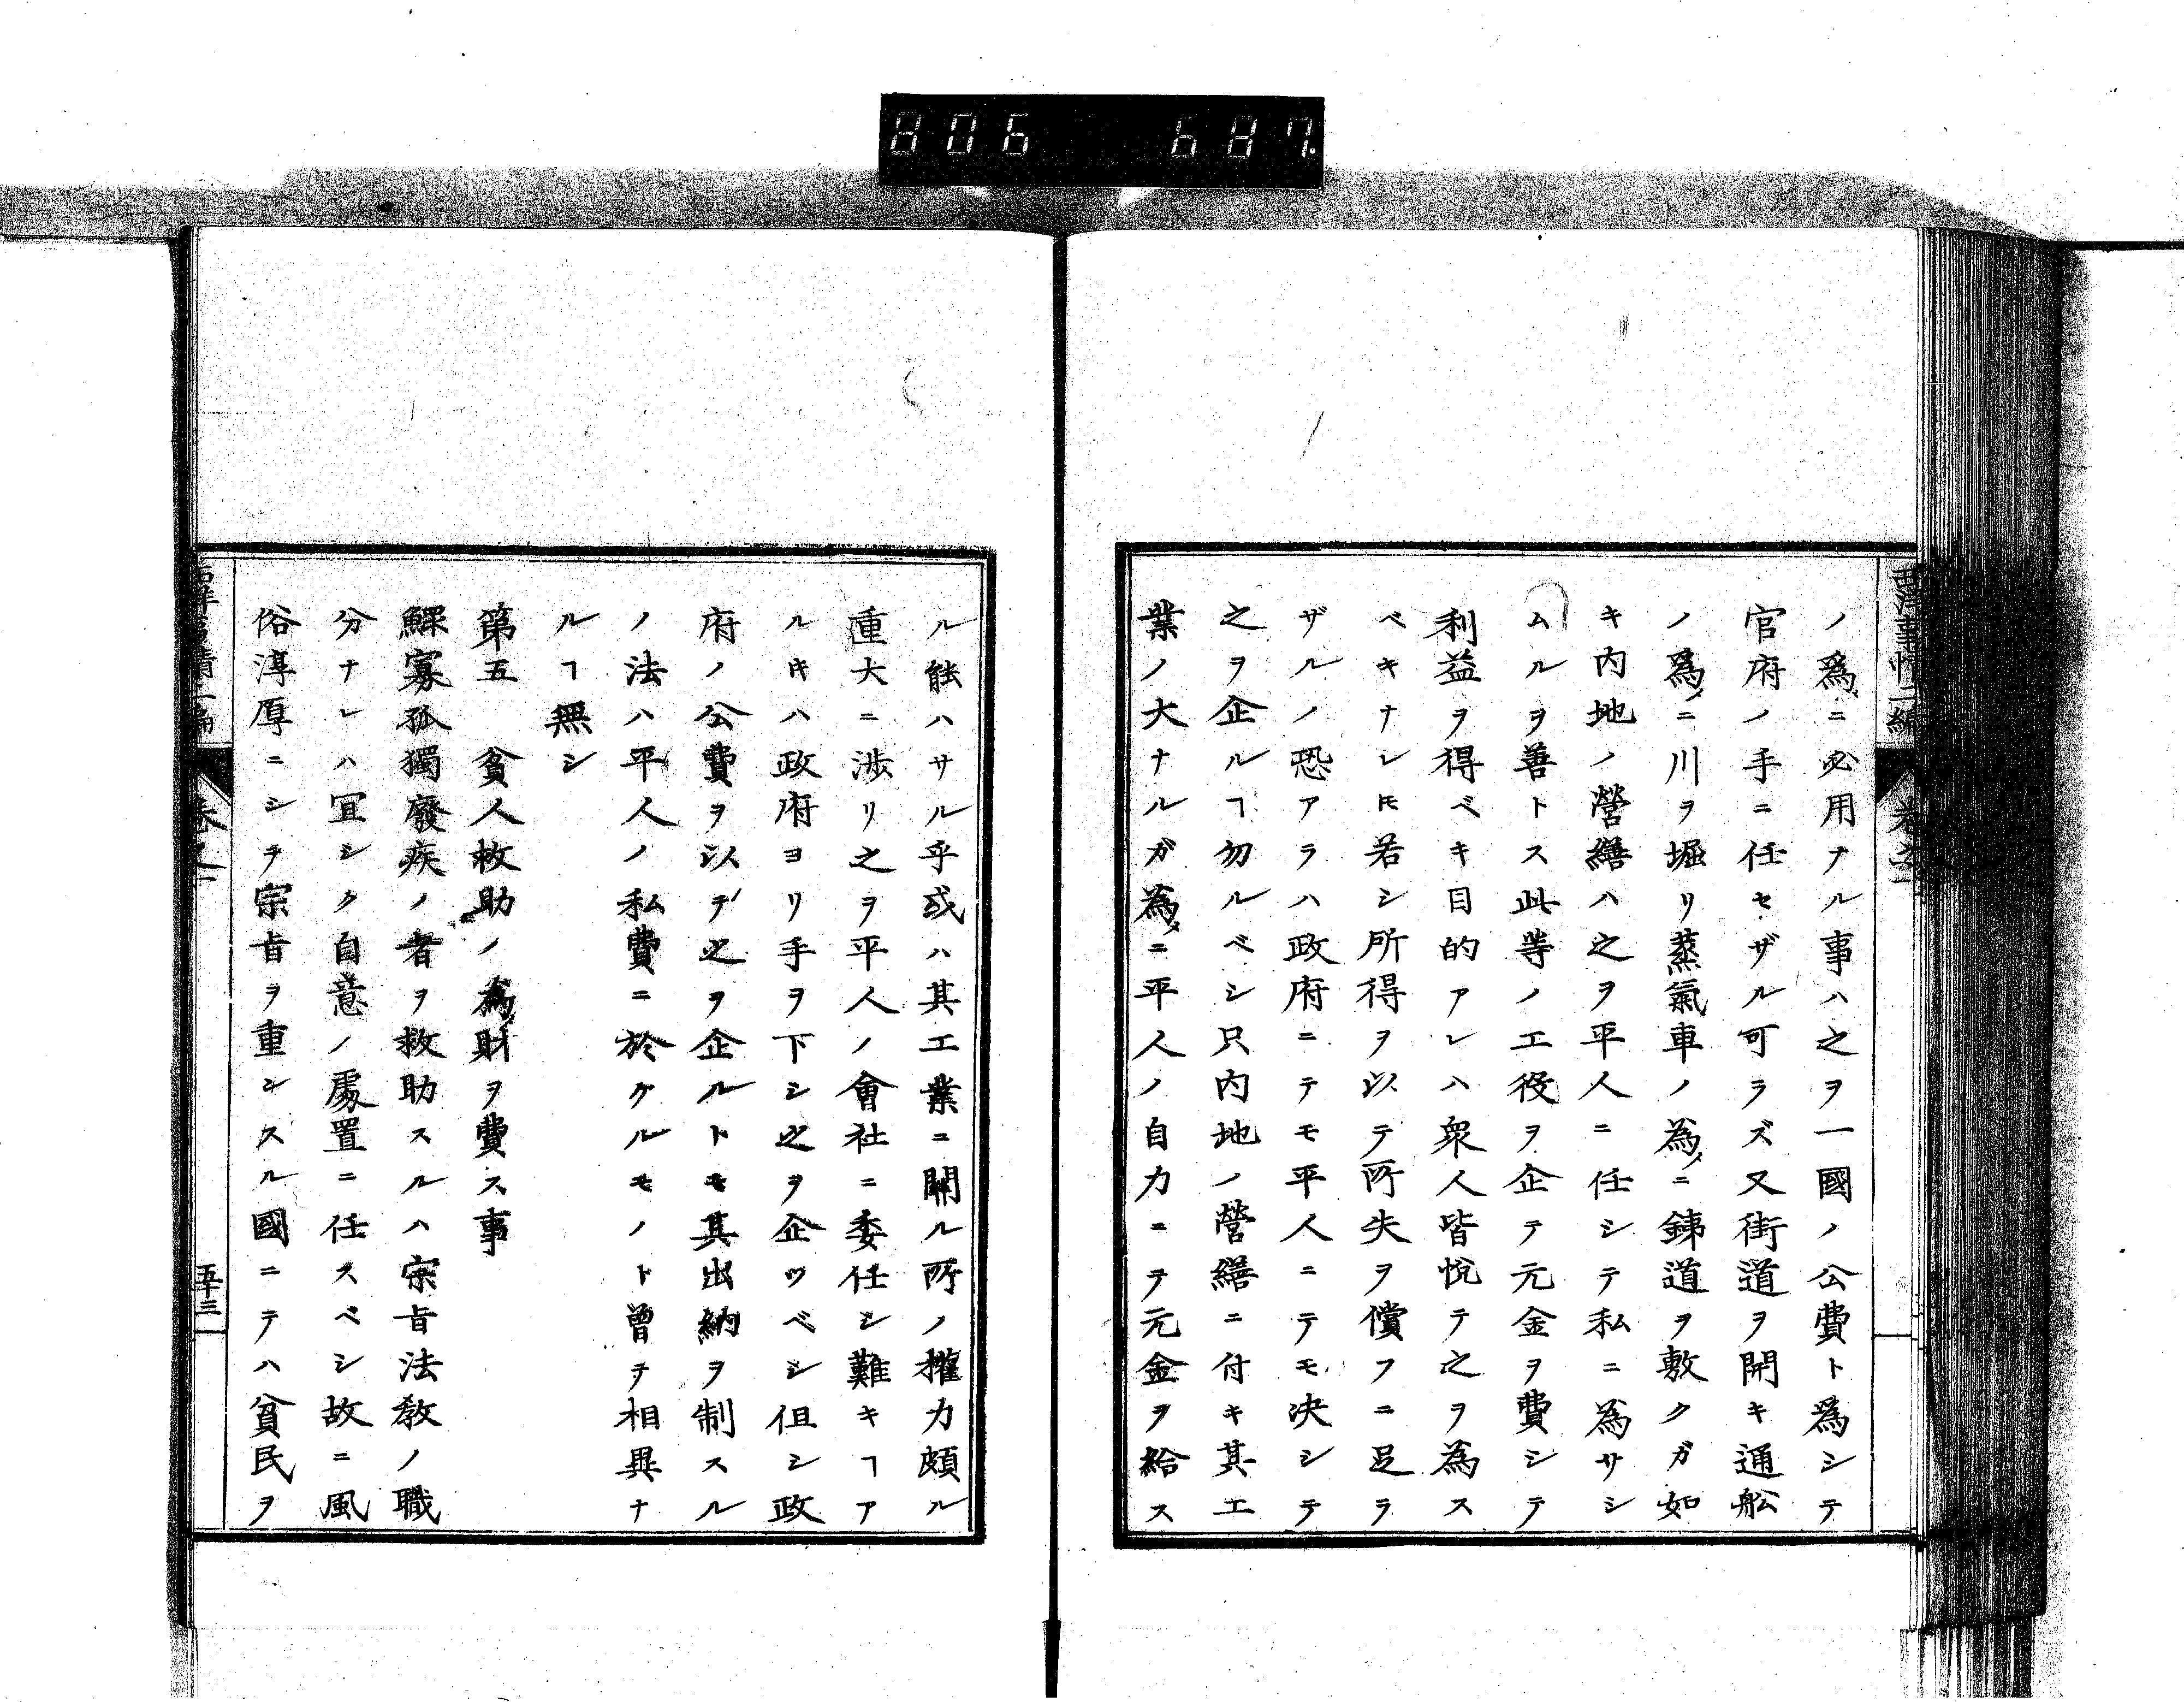 806 687.
西洋事情二編
卷之一
ノ爲ニ必用ナル事ハ之ヲ一國ノ公費ト爲シテ
官府ノ手ニ任セザル可ラズ又街道ヲ開キ通舩
ノ爲ニ川ヲ堀リ蒸氣車ノ為ニ銕道ヲ敷クガ如
キ内地ノ營繕ハ之ヲ平人ニ任シテ私ニ為サシ
ムルヲ善トス此等ノ工役ヲ企テ元金ヲ費シテ
利益ヲ得ベキ目的アレハ衆人皆悅テ之ヲ為ス
ベキナレ𪜈若シ所得ヲ以テ所失ヲ償フニ足ラ
ザルノ恐アラハ政府ニテモ平人ニテモ决シテ
之ヲ企ルヿ勿ルベシ只内地ノ營繕ニ付キ其工
業ノ大ナルガ為ニ平人ノ自力ニテ元金ヲ給ス
ル能ハサル乎或ハ其工業ニ關ル所ノ權力頗ル
重大ニ渉リ之ヲ平人ノ會社ニ委任シ難キヿア
ルキハ政府ヨリ手ヲ下シ之ヲ企ツベシ但シ政
府ノ公費ヲ以テ之ヲ企ルトモ其出納ヲ制スル
ノ法ハ平人ノ私費ニ於クルモノト曾テ相異ナ
ルヿ無シ
第五 貧人救助ノ為財ヲ費ス事
鰥寡孤獨廢疾ノ者ヲ救助スルハ宗旨法敎ノ職
分ナレハ冝シク自意ノ處置ニ任スベシ故ニ風
俗淳厚ニシテ宗旨ヲ重ンスル國ニテハ貧民ヲ
西洋事情二編
卷之一
五十三